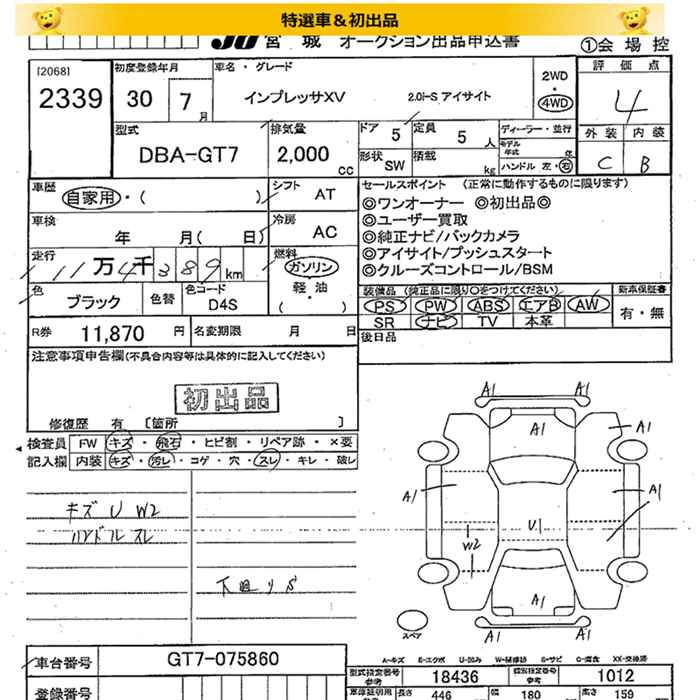 特選車＆初出品
JU 宮城 オークション出品申込書 ①会場控
[2068]
2339
初度登録年月
30 7月
車名・グレード
インプレッサXV 2.0i-S アイサイト
2WD
・
4WD
評価点
4
外装 内装
C B
型式
DBA-GT7
排気量
2,000 cc
ドア 5 定員 5人
形状 SW 積載 kg
ディーラー・並行
モデル年式 年
ハンドル 左・右
車歴
自家用・( )
シフト AT
車検
年 月( 日)
冷房 AC
走行 11万4千389km
燃料
ガソリン
軽・油
( ・ )
色 ブラック 色替 色コード D4S
R券 11,870円 名変期限 月 日
セールスポイント (正常に動作するものに限ります)
◎ワンオーナー ◎初出品◎
◎ユーザー買取
◎純正ナビ/バックカメラ
◎アイサイト/プッシュスタート
◎クルーズコントロール/BSM
装備品 (純正品に限り○をつけてください) 新車保証書
PS PW ABS エアB AW
SR ナビ TV 本革
有・無
後日品
注意事項申告欄(不具合内容等は具体的に記入してください)
初出品
修復歴 有 [箇所 ]
検査員 FW キズ・飛石・ヒビ割・リペア跡・×要
記入欄 内装 キズ・汚レ・コゲ・穴・スレ・キレ・破レ
キズ U W2
ハンドル スレ
下廻りS
A1 A1
A1 A1
A1 A1
U1
W2
A1
A1 A1
スペア
A-キズ E-エクボ U-凹み W-補修跡 S-サビ C-腐食 XX-交換済
車台番号 GT7-075860
登録番号
型式指定番号 参考 18436
類別指定番号 参考 1012
車庫証明用 参考 長さ 446 幅 180 高さ 159